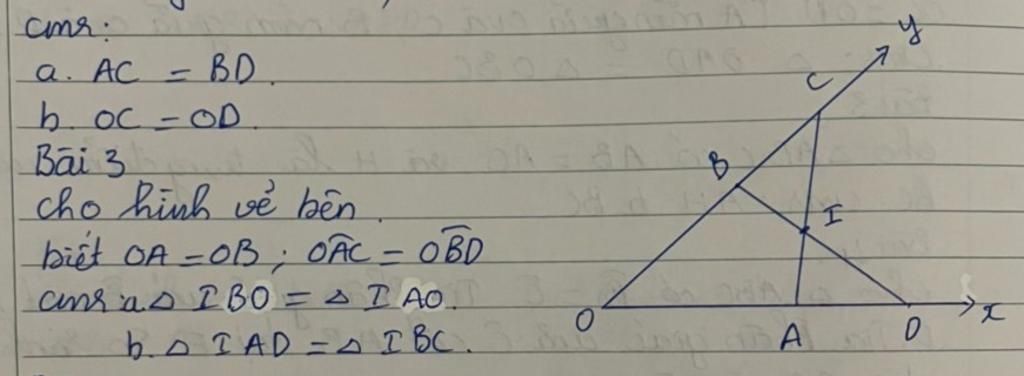 cmr:
a. AC = BD.
b. OC = OD.
Bài 3
cho hình vẽ bên.
biết OA = OB ; OÂC = OB̂D
cmr a. △ IBO = △ IAO.
b. △ IAD = △ IBC.
y
C
B
I
O
A
D
x